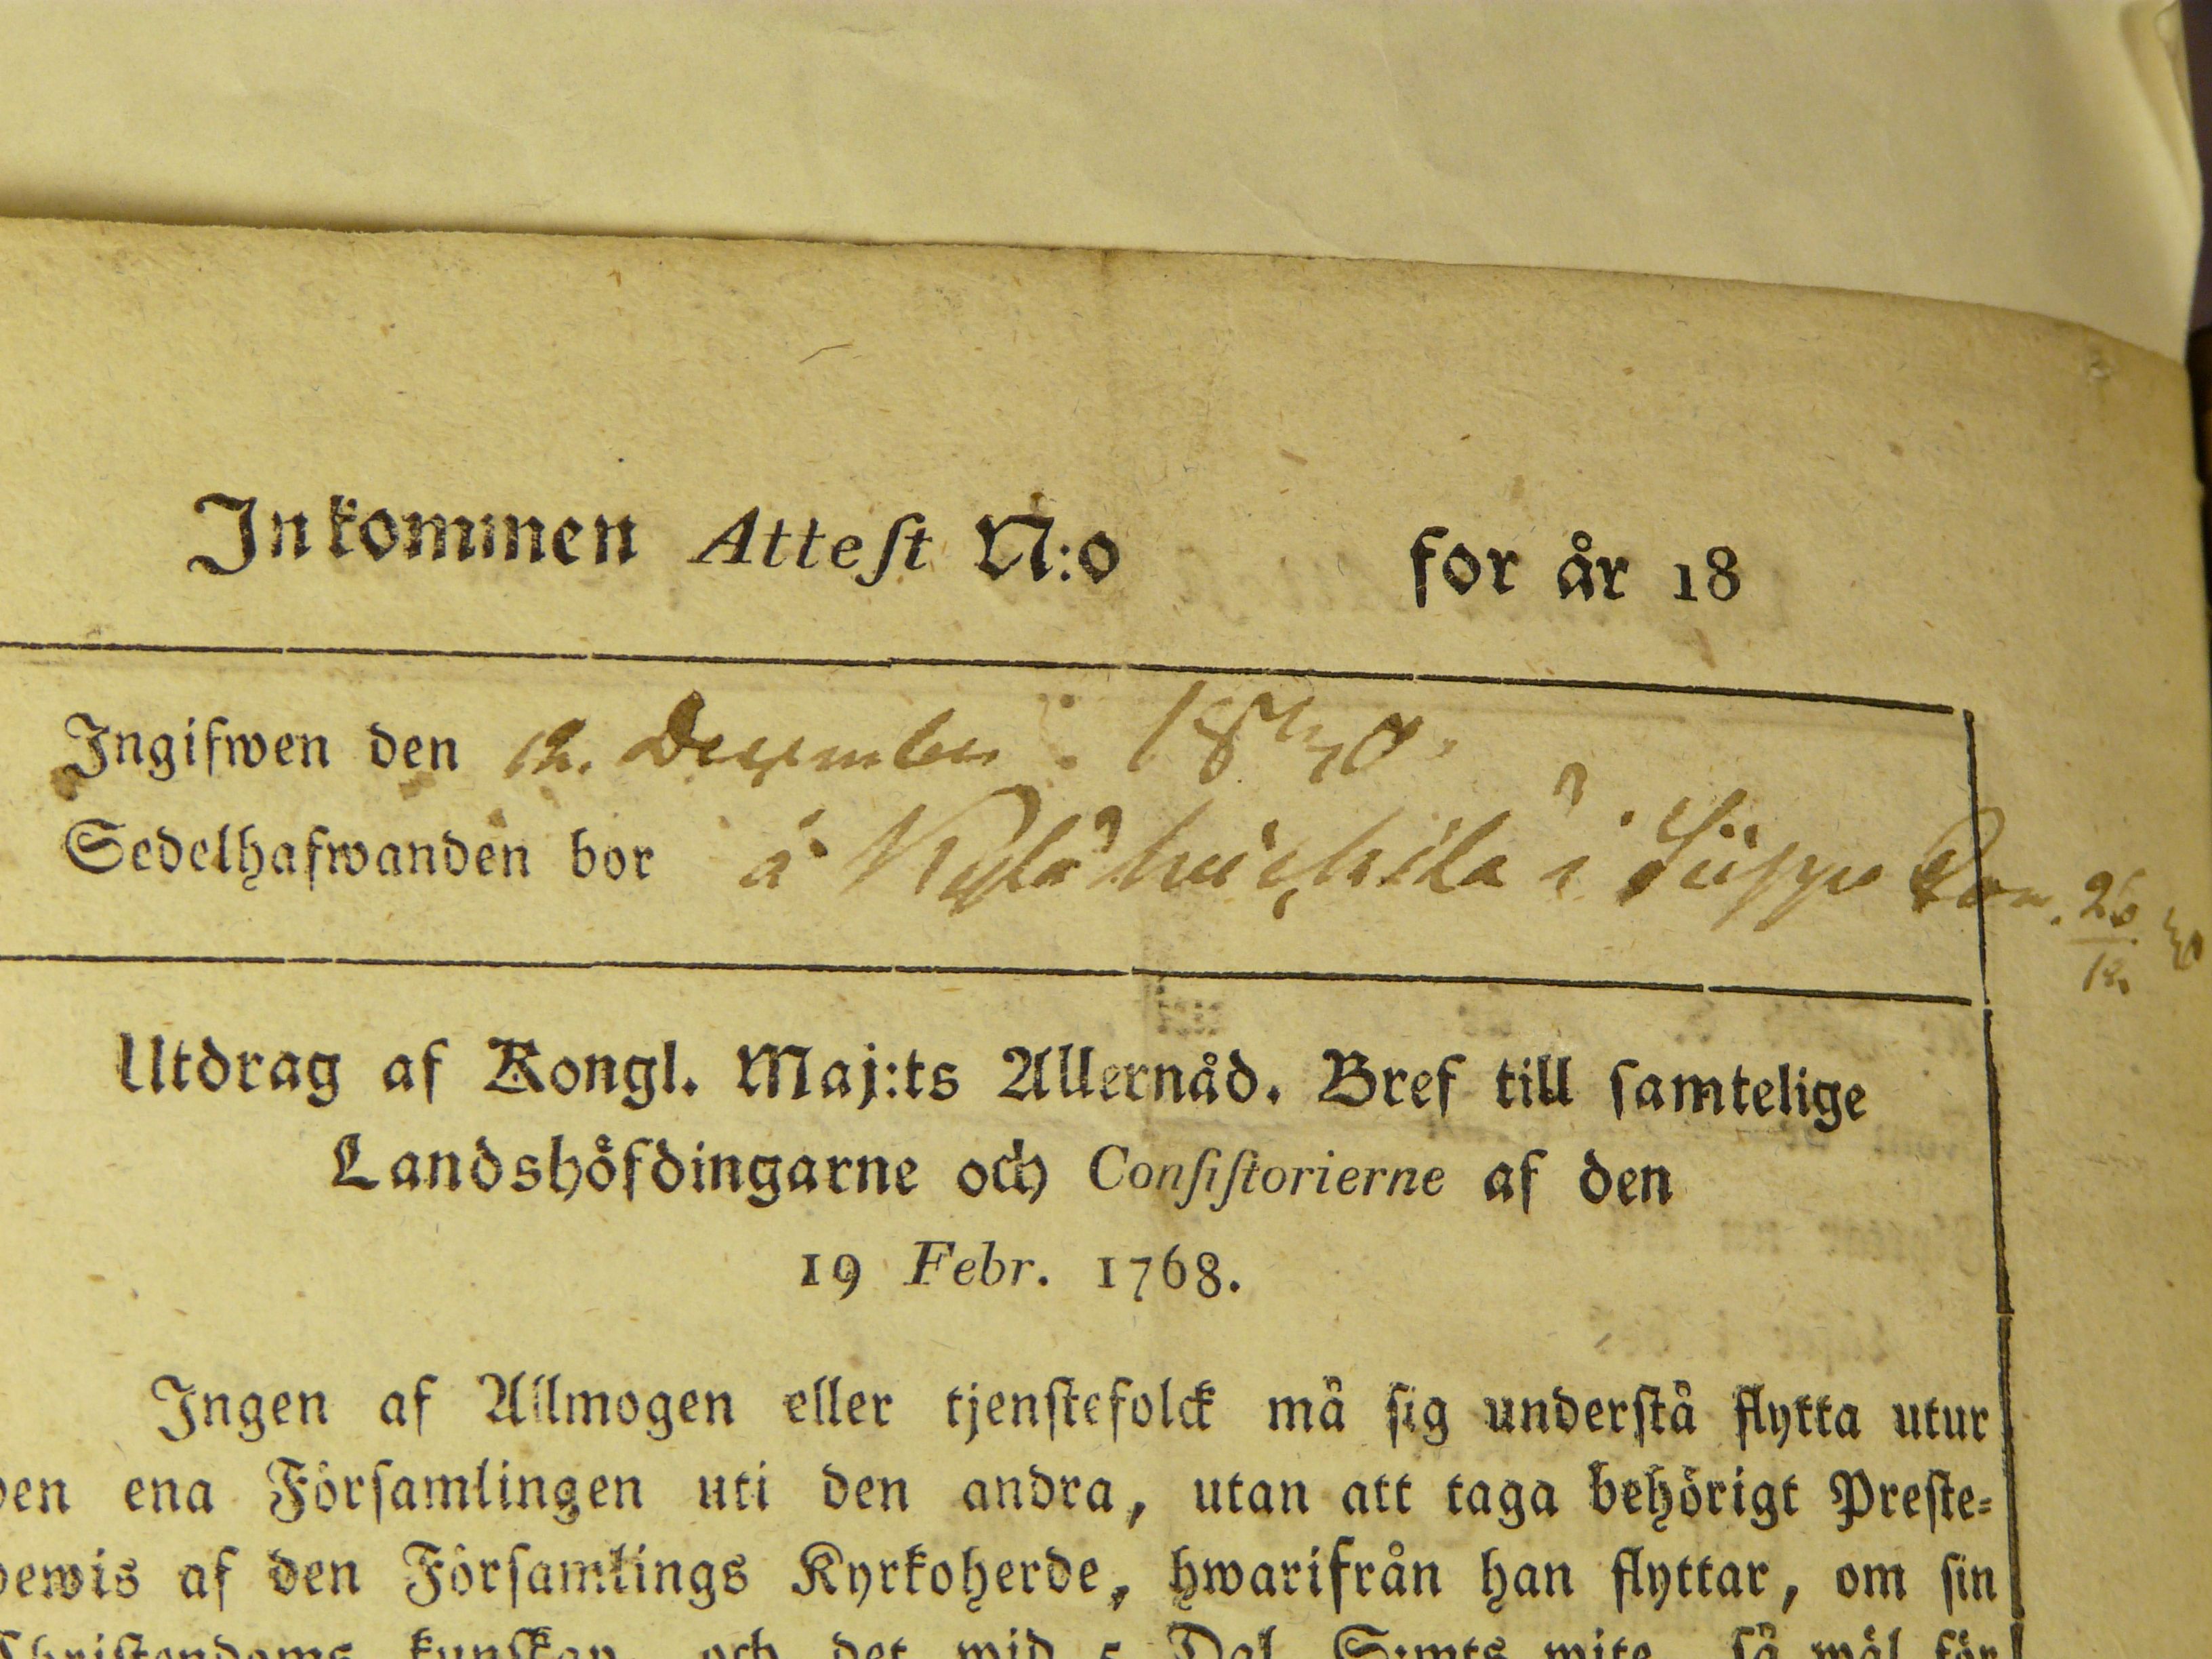 Inkommen Attest N:o for år 18
Ingifwen den 12. December 18
Sedelhafwanden bor å i
Utdrag af Kongl. Maj:ts Allernåd. Bref till samtelige
Landshöfdingarne och Consistorierne af den
19 Febr. 1768.
Ingen af Allmogen eller tjenstefolck må sig understå flytta utur
den ena Församlingen uti den andra, utan att taga behörigt Preste-
bewis af den Församlings Kyrkoherde, hwarifrån han flyttar, om sin
Christendoms kunskap, och det wid 5 Dal. S:mts wite, så wäl för